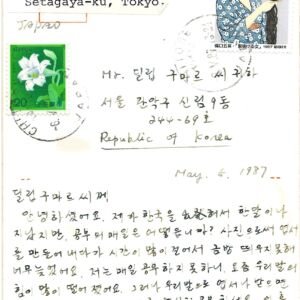 Setagaya-ku, Tokyo.
Japan
Mr. 딜립 구마르 씨 귀하
서울 관악구 신림9동
244-69호
Republic of Korea
May. 6. 1987
딜립 구마르 씨께
안녕하셨어요. 제가 한국을 출발해서 한달이나
지났지만, 공부의 매일은 어떻습니까? 사진으로써 엽서
를 만들어 내다가 시간이 많이 걸어서 금방 띄우지 못해서
너무 늦었어요. 저는 매일 공부하지 못하니, 요즘 우리 말의
힘도 많이 떨어졌어요. 그러나 우리말로 엽서나 받으면